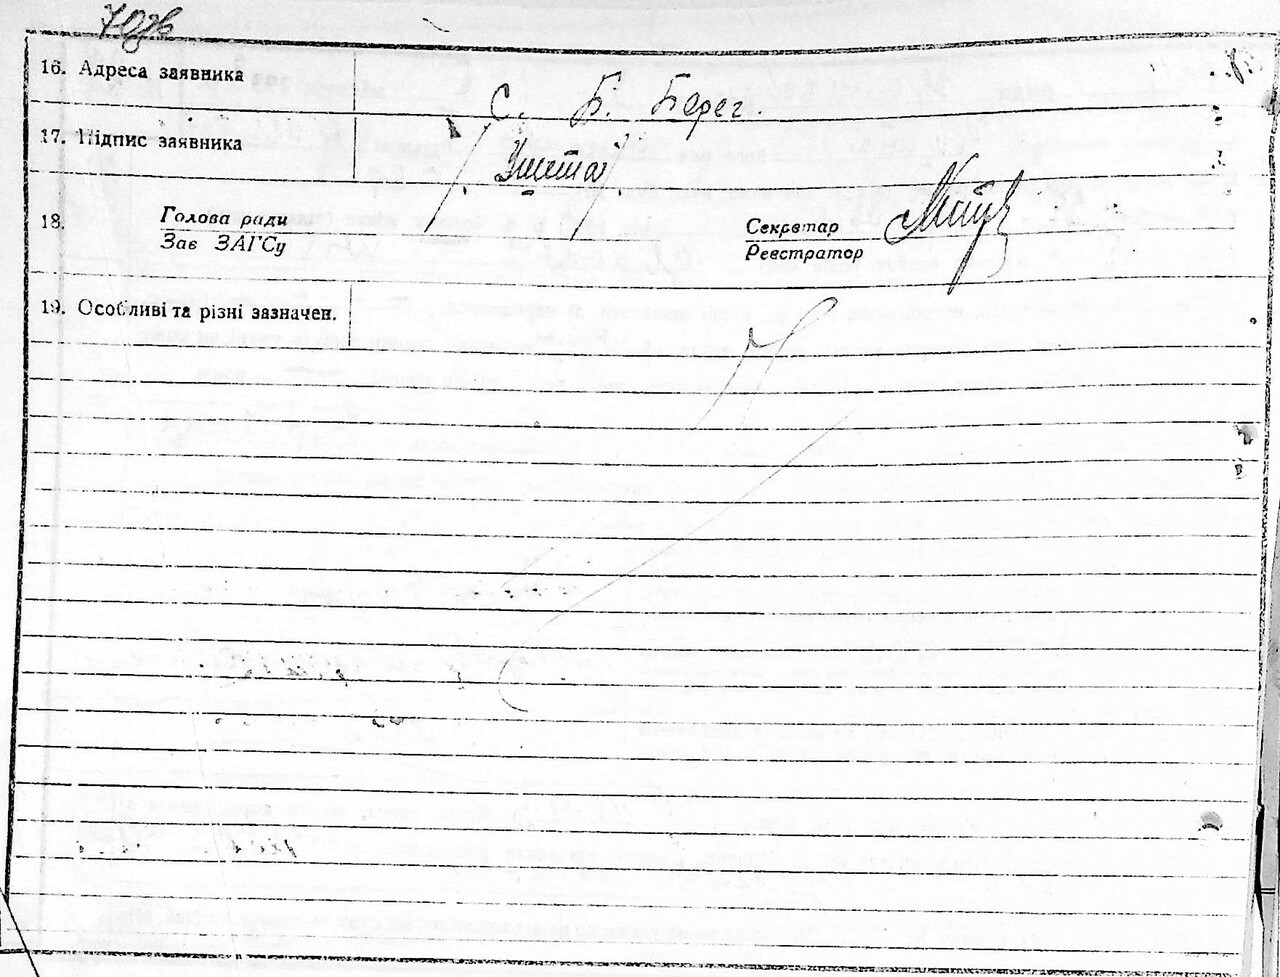 16. Адреса заявника
С. Б. Берег.
17. Підпис заявника
18. Голова ради
Зав ЗАГСу
Секретар
Реєстратор
19. Особливі та різні зазначен.